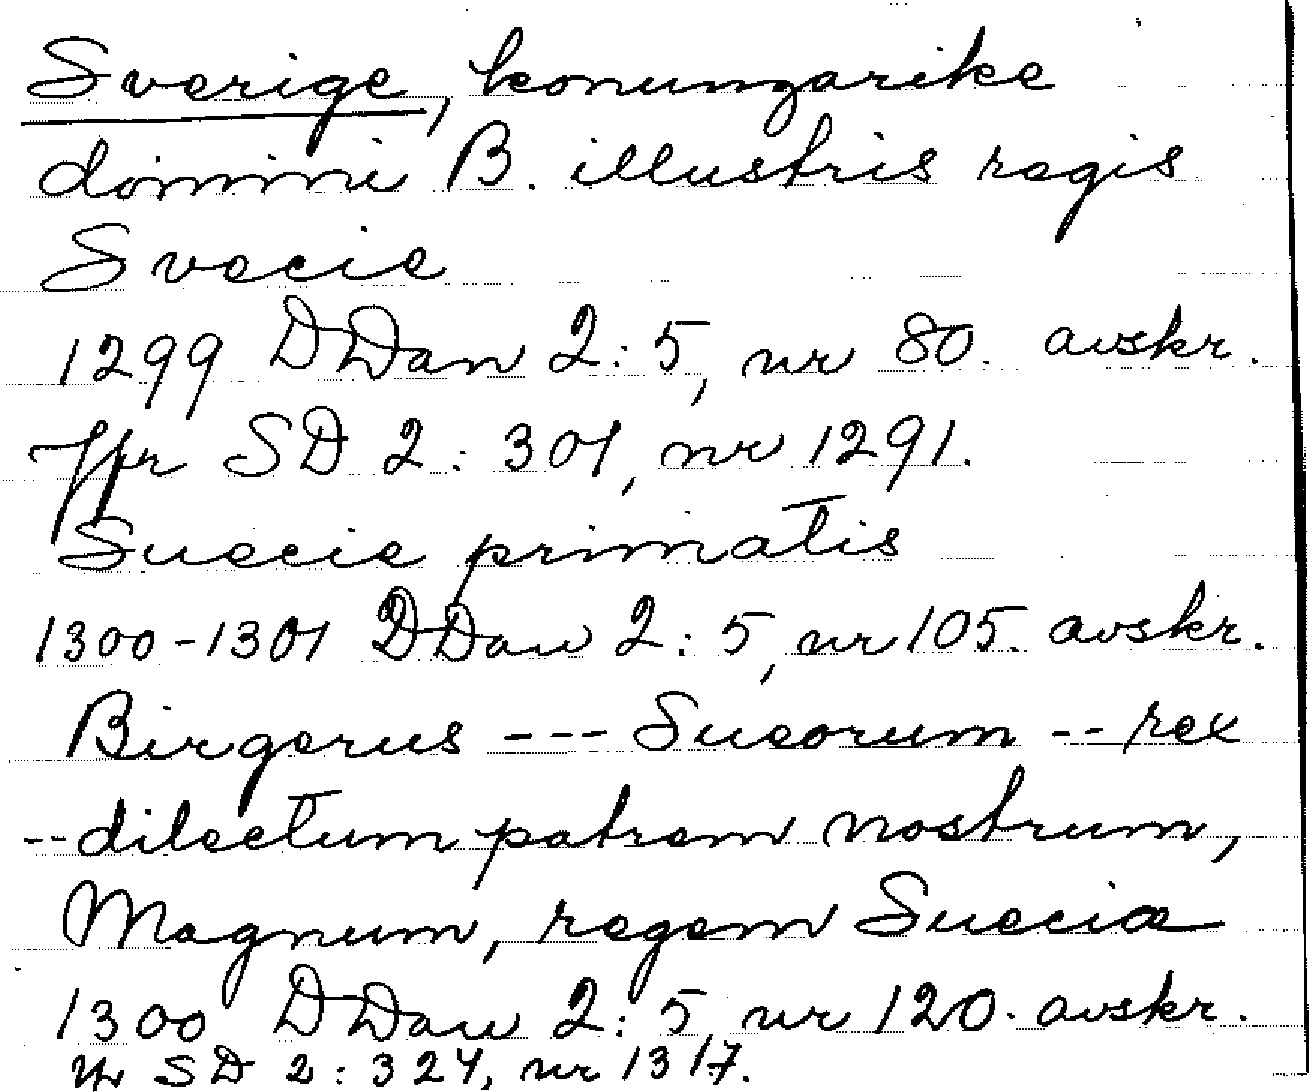 Sverige, konungarike
domini B. illustris regis
Svecie
1299 DDan 2:5, nr 80. avskr.
Jfr SD 2: 301, nr 1291.
Suecie primatis
1300-1301 DDan 2:5, nr 105. avskr.
Birgerus --- Sueorum -- rex
-- dilectum patrem nostrum,
Magnum, regem Sueciæ
1300 DDan 2:5, nr 120. avskr.
Jfr SD 2: 324, nr 1317.